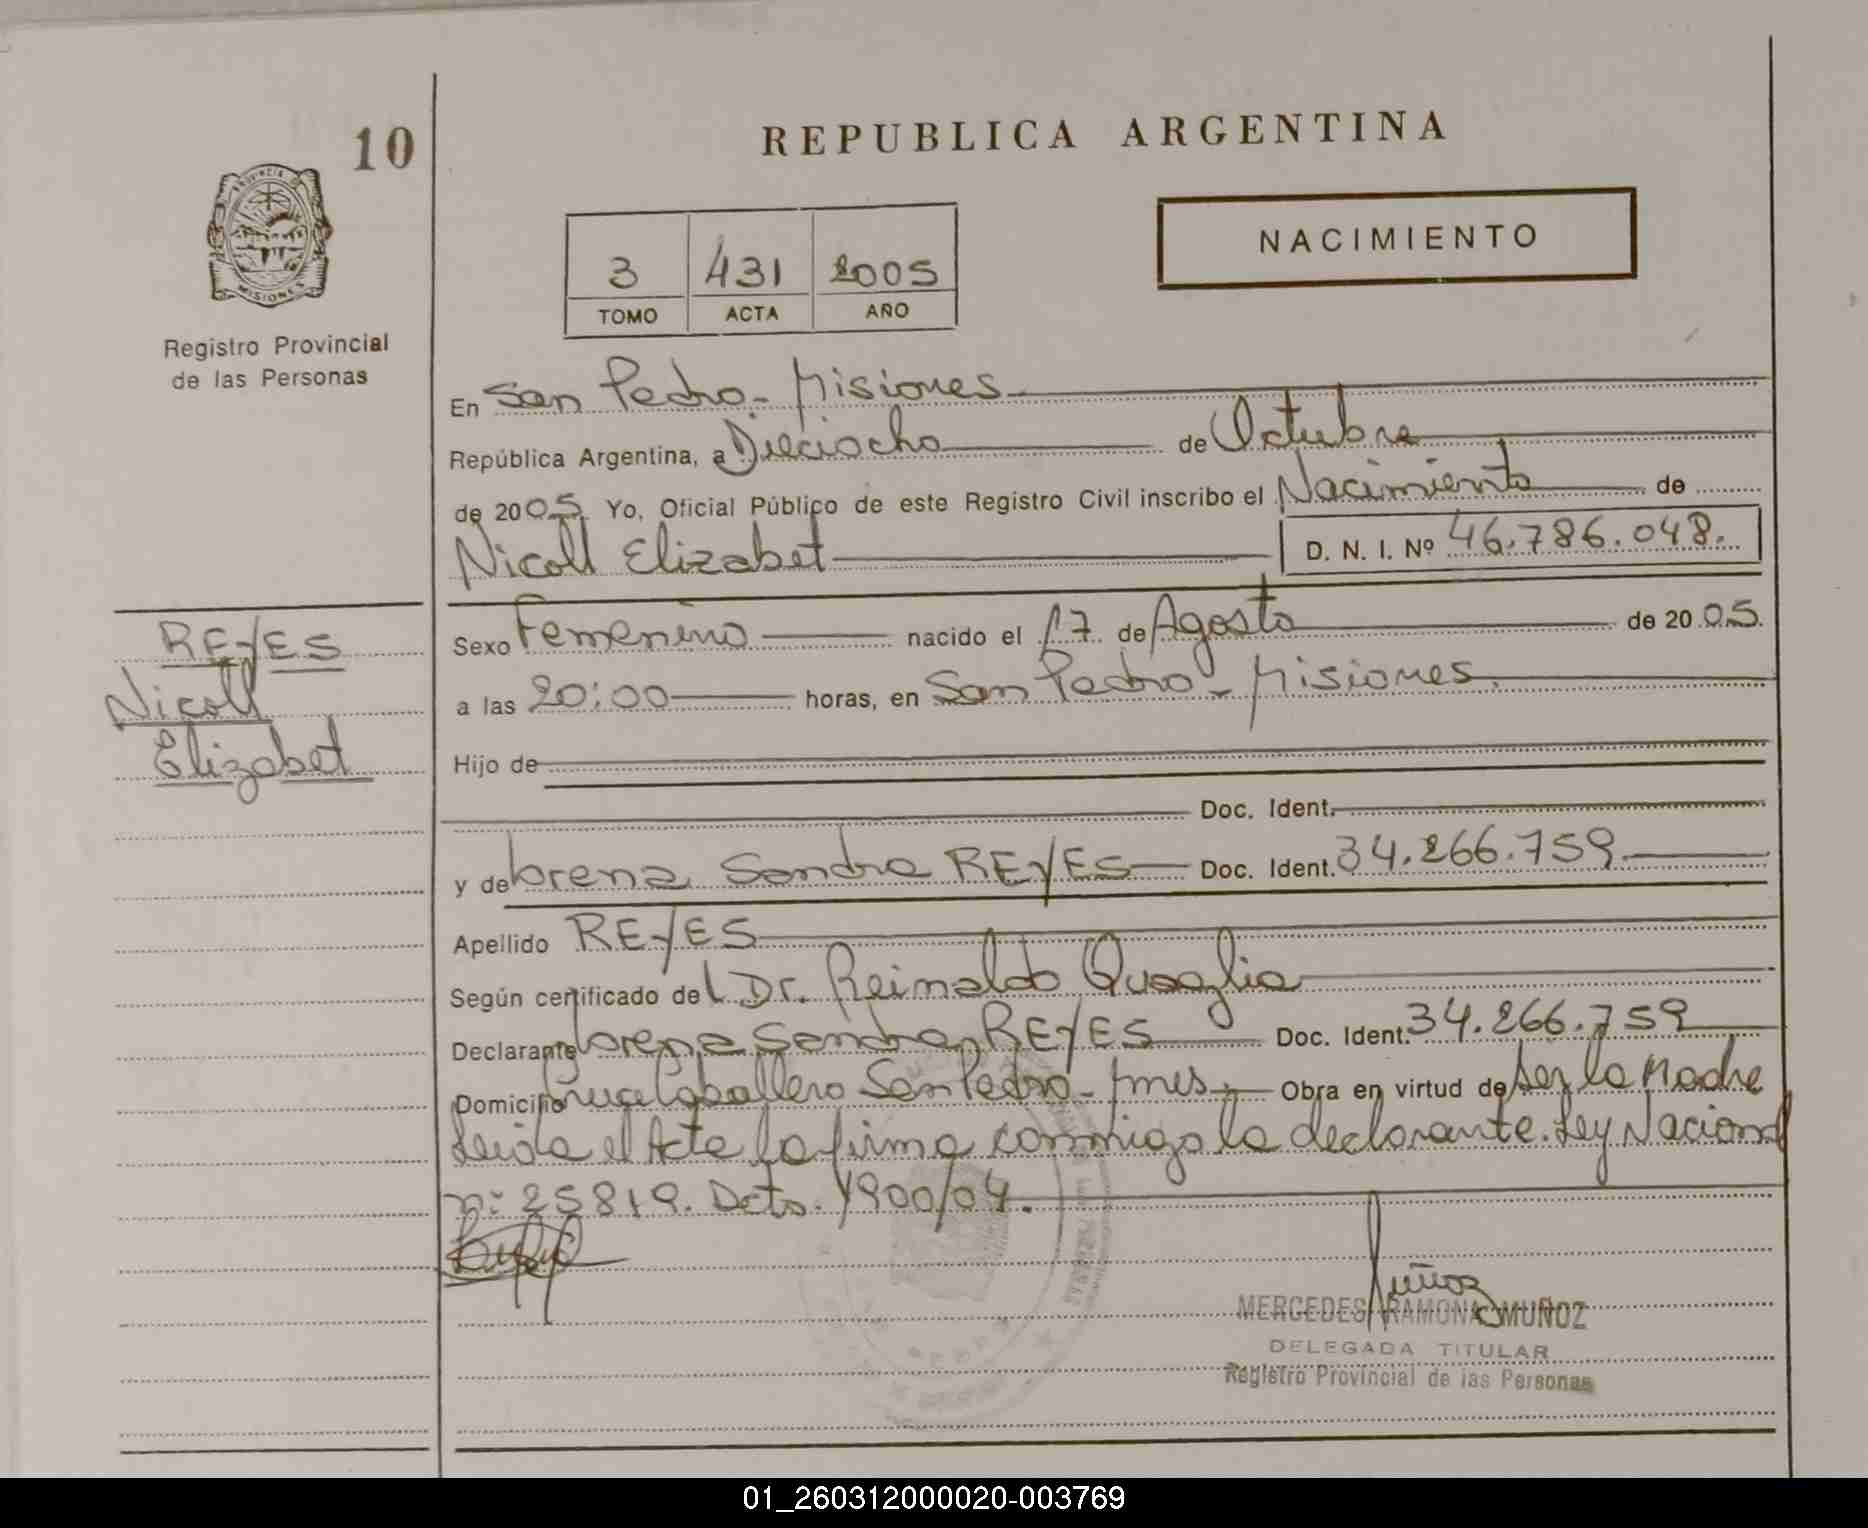 10
REPUBLICA ARGENTINA
PROVINCIA
MISIONES
NACIMIENTO
3 431 2005
TOMO ACTA AÑO
Registro Provincial
de las Personas
En San Pedro - Misiones
República Argentina, a Dieciocho de Octubre
de 2005 Yo, Oficial Público de este Registro Civil inscribo el Nacimiento de
Nicoll Elizabet D. N. I. Nº 46.786.048.
REYES
Nicoll
Elizabet
Sexo Femenino nacido el 17 de Agosto de 2005.
a las 20:00 horas, en San Pedro - Misiones.
Hijo de
Doc. Ident.
y de Lorena Sandra REYES Doc. Ident. 34.266.759.
Apellido REYES
Según certificado del Dr. Reinaldo Quaglia
Declarante Lorena Sandra REYES Doc. Ident. 34.266.759
Domicilio Cruce Caballero San Pedro - Mnes. Obra en virtud de Ser la Madre
Leida el Acta la firma conmigo la declarante. Ley Nacional
nº 25819. Dcto. 1900/04.
Muñoz
MERCEDES RAMONA MUÑOZ
DELEGADA TITULAR
Registro Provincial de las Personas
01_260312000020-003769